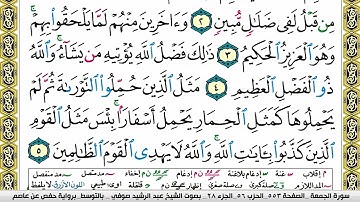 مِن قَبْلُ لَفِى ضَلَٰلٍ مُّبِينٍ ٢ وَءَاخَرِينَ مِنْهُمْ لَمَّا يَلْحَقُوا۟ بِهِمْ
وَهُوَ ٱلْعَزِيزُ ٱلْحَكِيمُ ٣ ذَٰلِكَ فَضْلُ ٱللَّهِ يُؤْتِيهِ مَن يَشَآءُ ۚ وَٱللَّهُ
ذُو ٱلْفَضْلِ ٱلْعَظِيمِ ٤ مَثَلُ ٱلَّذِينَ حُمِّلُوا۟ ٱلتَّوْرَىٰةَ ثُمَّ لَمْ
يَحْمِلُوهَا كَمَثَلِ ٱلْحِمَارِ يَحْمِلُ أَسْفَارًۢا ۚ بِئْسَ مَثَلُ ٱلْقَوْمِ
ٱلَّذِينَ كَذَّبُوا۟ بِـَٔايَٰتِ ٱللَّهِ ۚ وَٱللَّهُ لَا يَهْدِى ٱلْقَوْمَ ٱلظَّٰلِمِينَ ٥
سورة الجمعة . الصفحة ٥٥٣ الحزب ٥٦ . الجزء ٢٨ . بصوت الشيخ عبد الرشيد صوفي . بالتوسط . برواية حفص عن عاصم